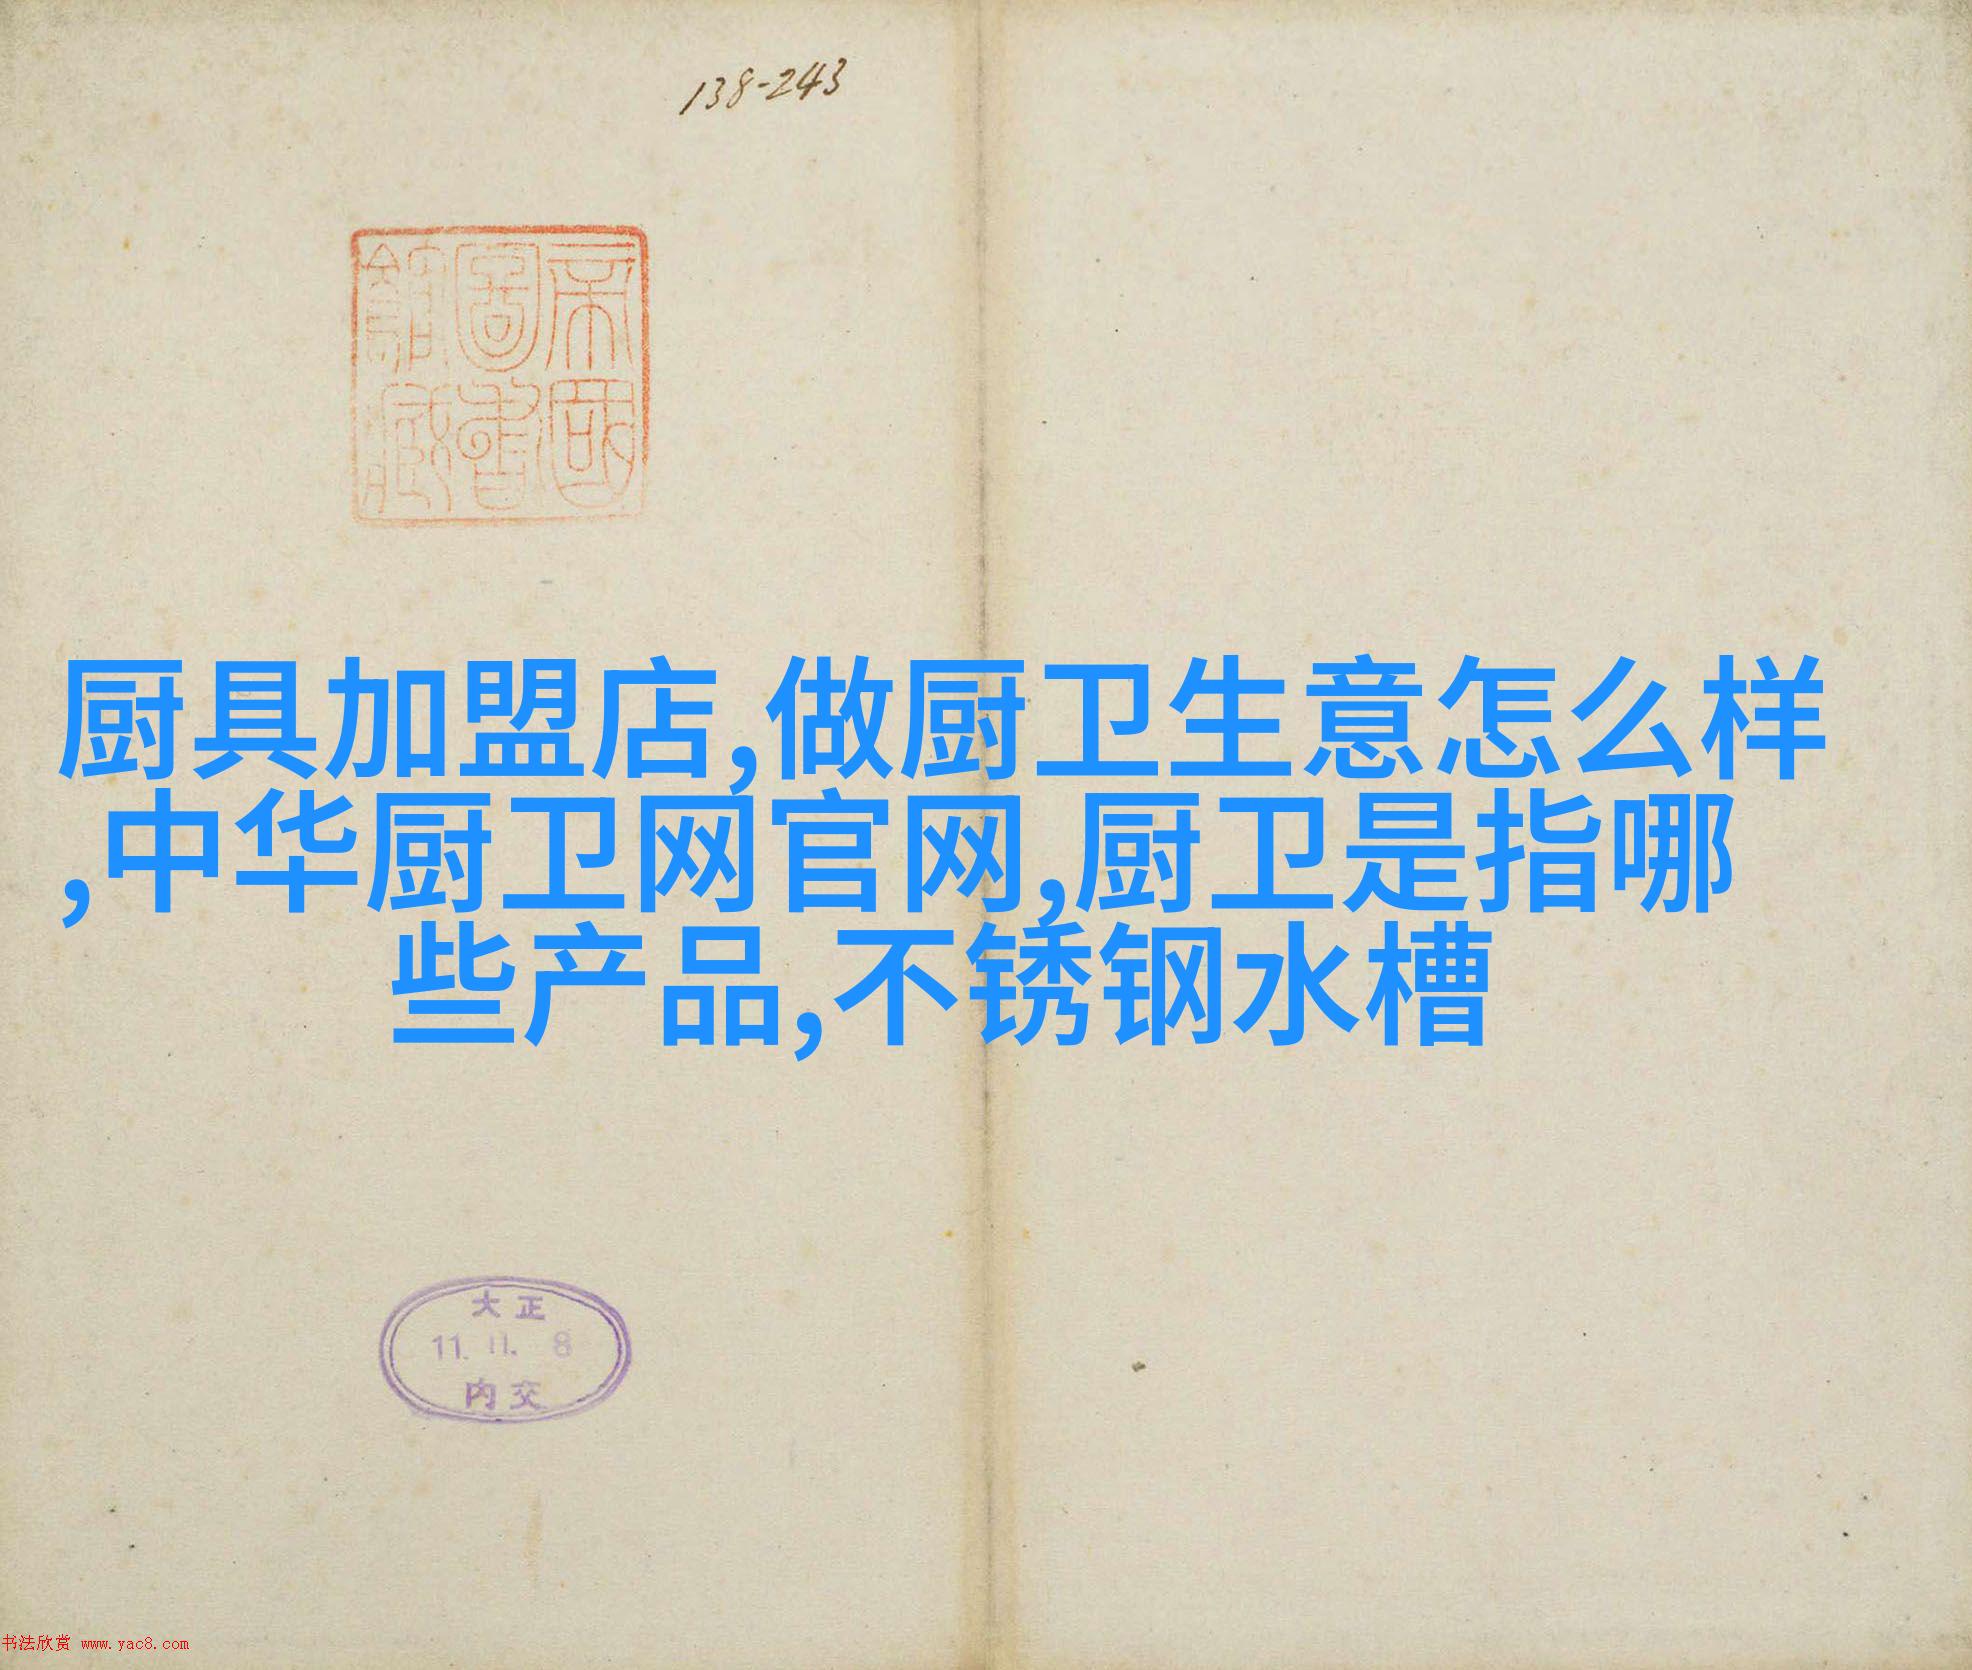 138-243
帝國
圖書
館藏
厨具加盟店,做厨卫生意怎么样
,中华厨卫网官网,厨卫是指哪
些产品,不锈钢水槽
大正
11.11.8
内交
书法欣赏 www.yac8.com